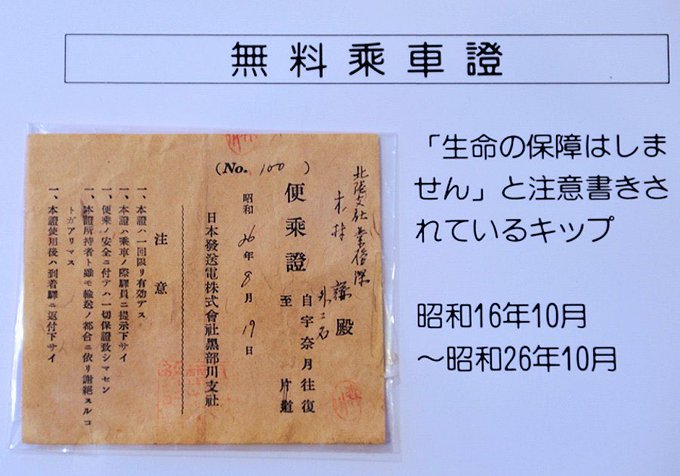 無料乗車證
「生命の保障はしま
せん」と注意書きさ
れているキップ
昭和16年10月
～昭和26年10月
(No. 100)
殿
便乗證
自宇奈月往復
至 片道
昭和 26年8月19日
日本發送電株式會社黑部川支社
注意
一、本證ハ一回限リ有効アス
一、本證ハ乘車ノ際驛員ニ提示下サイ
一、便乘ノ安全ニ付テハ一切保證致シマセン
一、本證所持者ト雖モ輸送ノ都合ニ依リ謝絕スルコ
トガアリマス
一、本證使用後ハ到着驛ニ返付下サイ